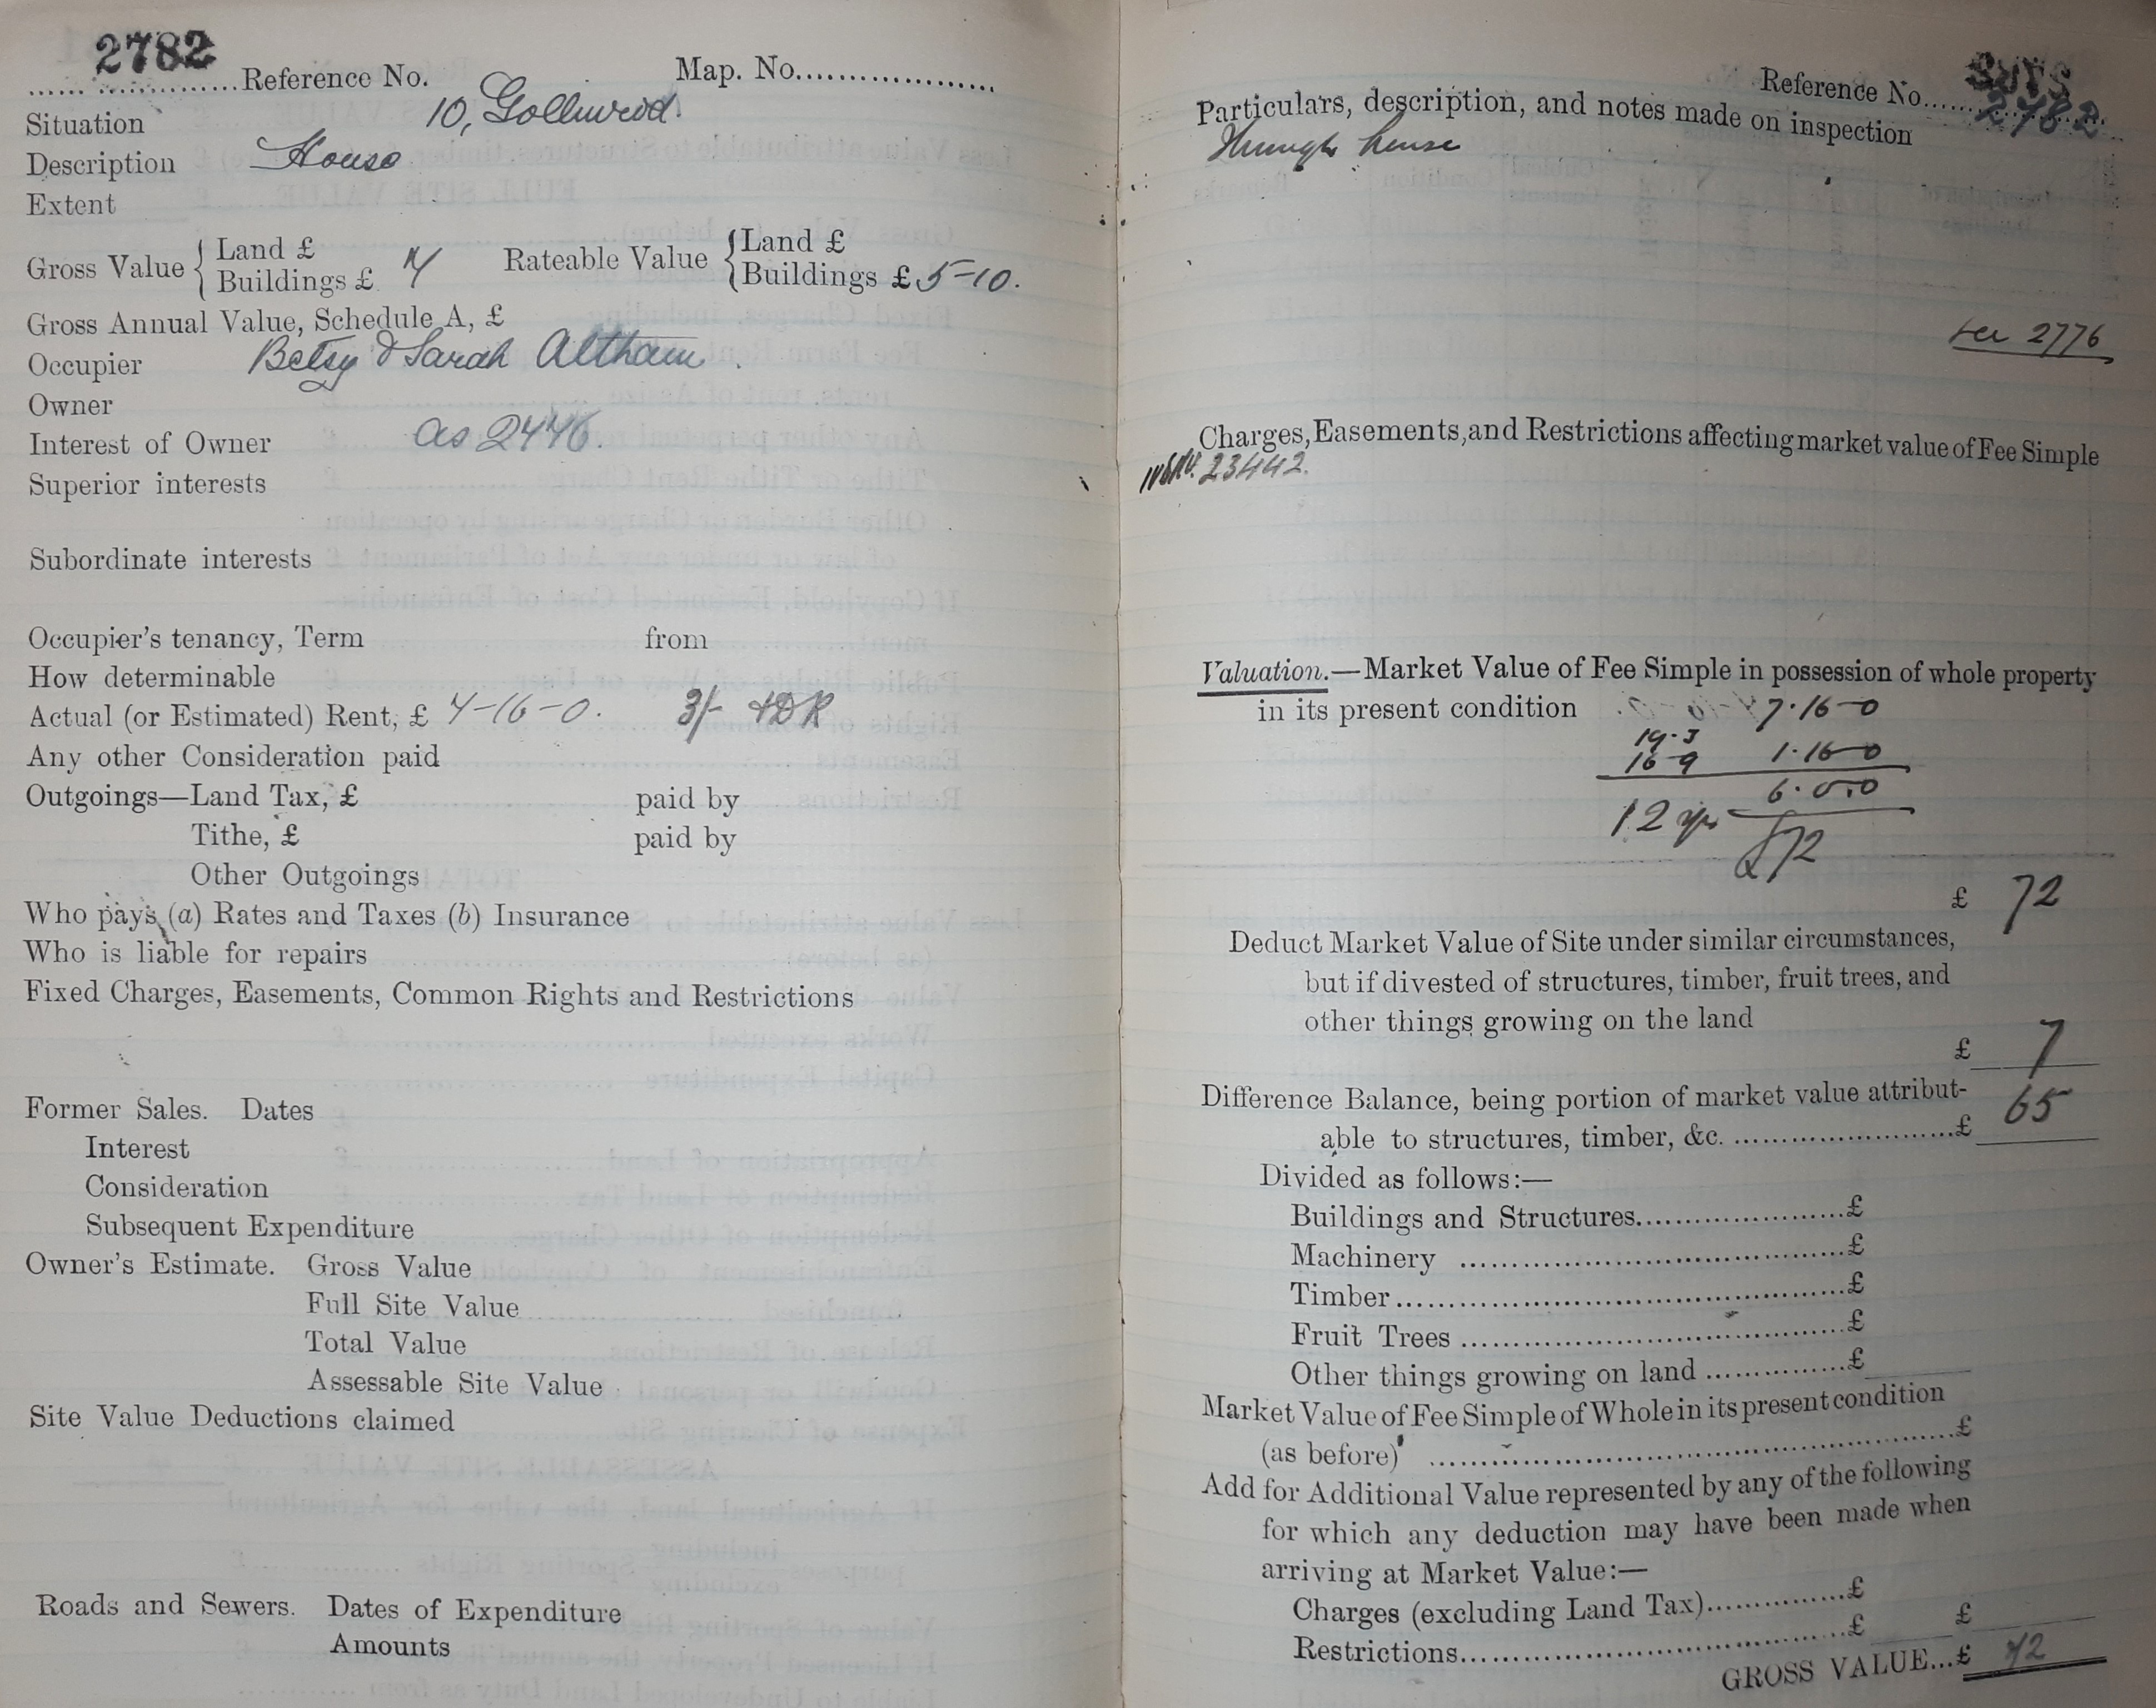 2782
Reference No. Map. No.
Situation 10,
Description House
Extent
Gross Value { Land £
Buildings £ Rateable Value { Land £
Buildings £ 5-10.
Gross Annual Value, Schedule A, £
Occupier Betsy & Sarah Altham.
Owner
Interest of Owner as 2446.
Superior interests
Subordinate interests
Occupier's tenancy, Term from
How determinable
Actual (or Estimated) Rent, £ 7-16-0. 3/- + D R
Any other Consideration paid
Outgoings—Land Tax, £ paid by
Tithe, £ paid by
Other Outgoings
Who pays (a) Rates and Taxes (b) Insurance
Who is liable for repairs
Fixed Charges, Easements, Common Rights and Restrictions
Former Sales. Dates
Interest
Consideration
Subsequent Expenditure
Owner's Estimate. Gross Value
Full Site Value
Total Value
Assessable Site Value
Site Value Deductions claimed
Roads and Sewers. Dates of Expenditure
Amounts
Reference No. 2782
Particulars, description, and notes made on inspection
Through house
see 2776
Charges, Easements, and Restrictions affecting market value of Fee Simple
23442.
Valuation.—Market Value of Fee Simple in possession of whole property
in its present condition 7.16-0
19.3
16-9 1.16-0
6.0.0
12 yrs
£72
£ 72
Deduct Market Value of Site under similar circumstances,
but if divested of structures, timber, fruit trees, and
other things growing on the land
£ 7
Difference Balance, being portion of market value attribut-
able to structures, timber, &c. £ 65
Divided as follows:—
Buildings and Structures £
Machinery £
Timber £
Fruit Trees £
Other things growing on land £
Market Value of Fee Simple of Whole in its present condition
(as before) £
Add for Additional Value represented by any of the following
for which any deduction may have been made when
arriving at Market Value:—
Charges (excluding Land Tax) £
Restrictions £ £
GROSS VALUE...£ 72